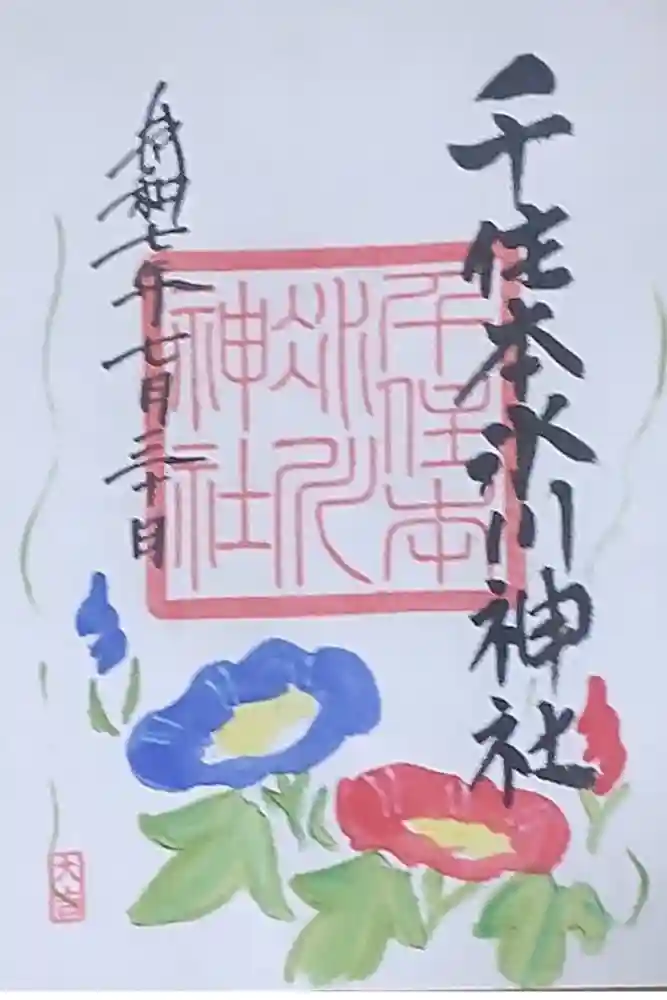 千住本氷川神社
千住本
氷川
神社
令和七年七月三十日
大吉